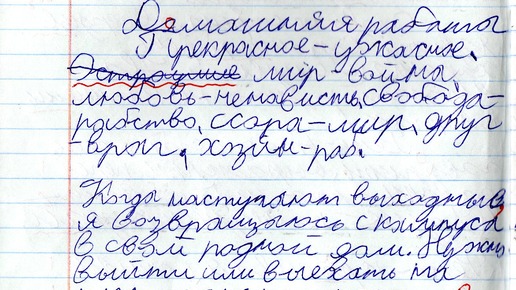 Домашняя работы
Прекрасное-ужасное,
мир-войны,
любовь-ненависть, свобода-
рабство, ссора-мир, друг
-враг, хозяин-раб.
Когда наступают выходные
я возвращаюсь с кампуса
в свой родной дом. Нужно
выйти или выехать на